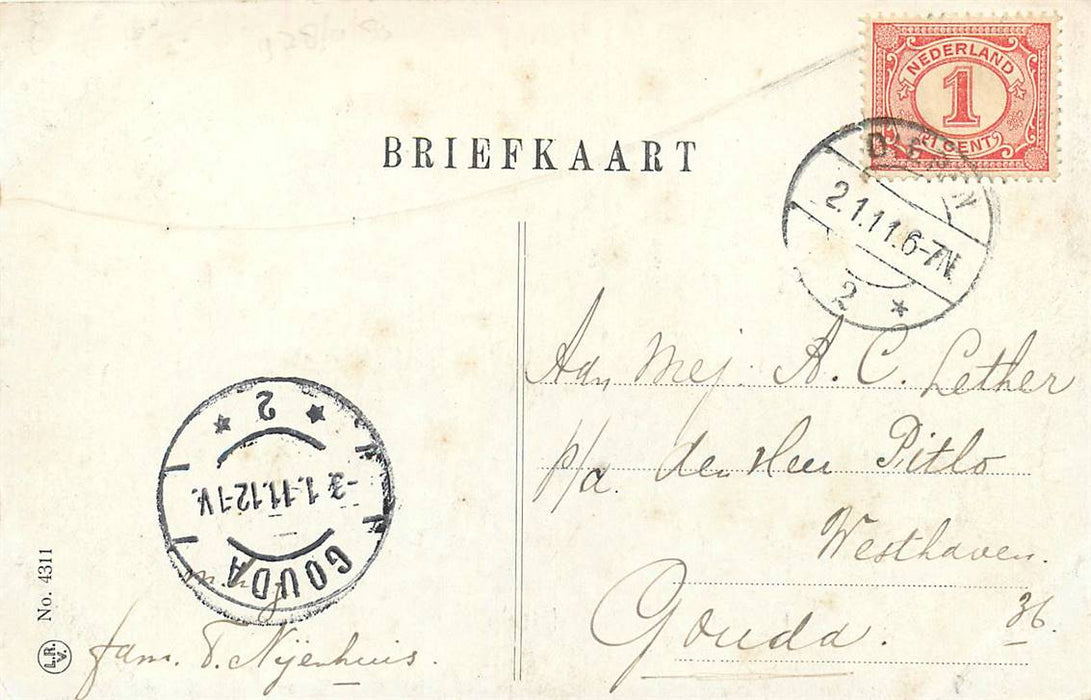 BRIEFKAART
NEDERLAND
1
CENT
2.1.11.6-7N.
2 *
Aan Mej. A. C. Lether
p/a. den Heer Pitlo
Westhaven.
Gouda. 36
* 2 *
-3.1.11.12-1V.
GOUDA
fam. T. Nijenhuis.
No. 4311
L.R.
V.